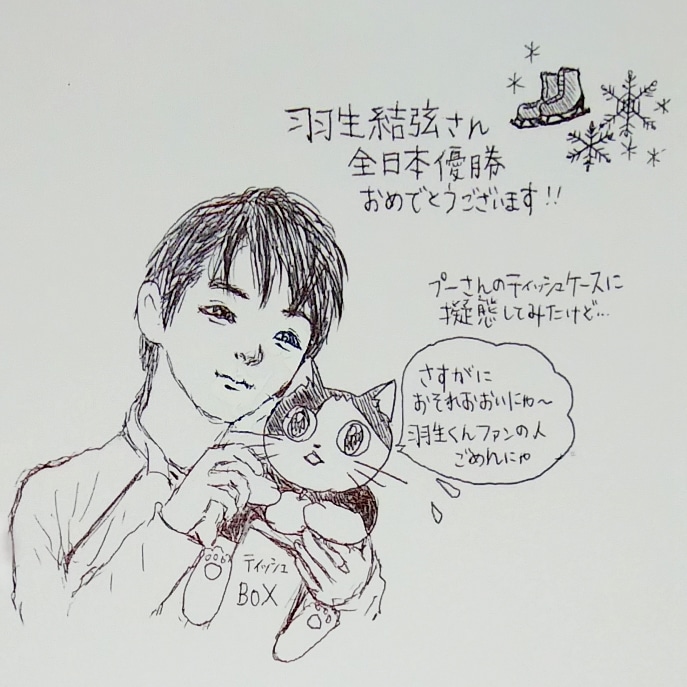 羽生結弦さん
全日本優勝
おめでとうございます!!
プーさんのティッシュケースに
擬態してみたけど…
さすがに
おそれおおいにゃ～
羽生くんファンの人
ごめんにゃ
ティッシュ
BOX